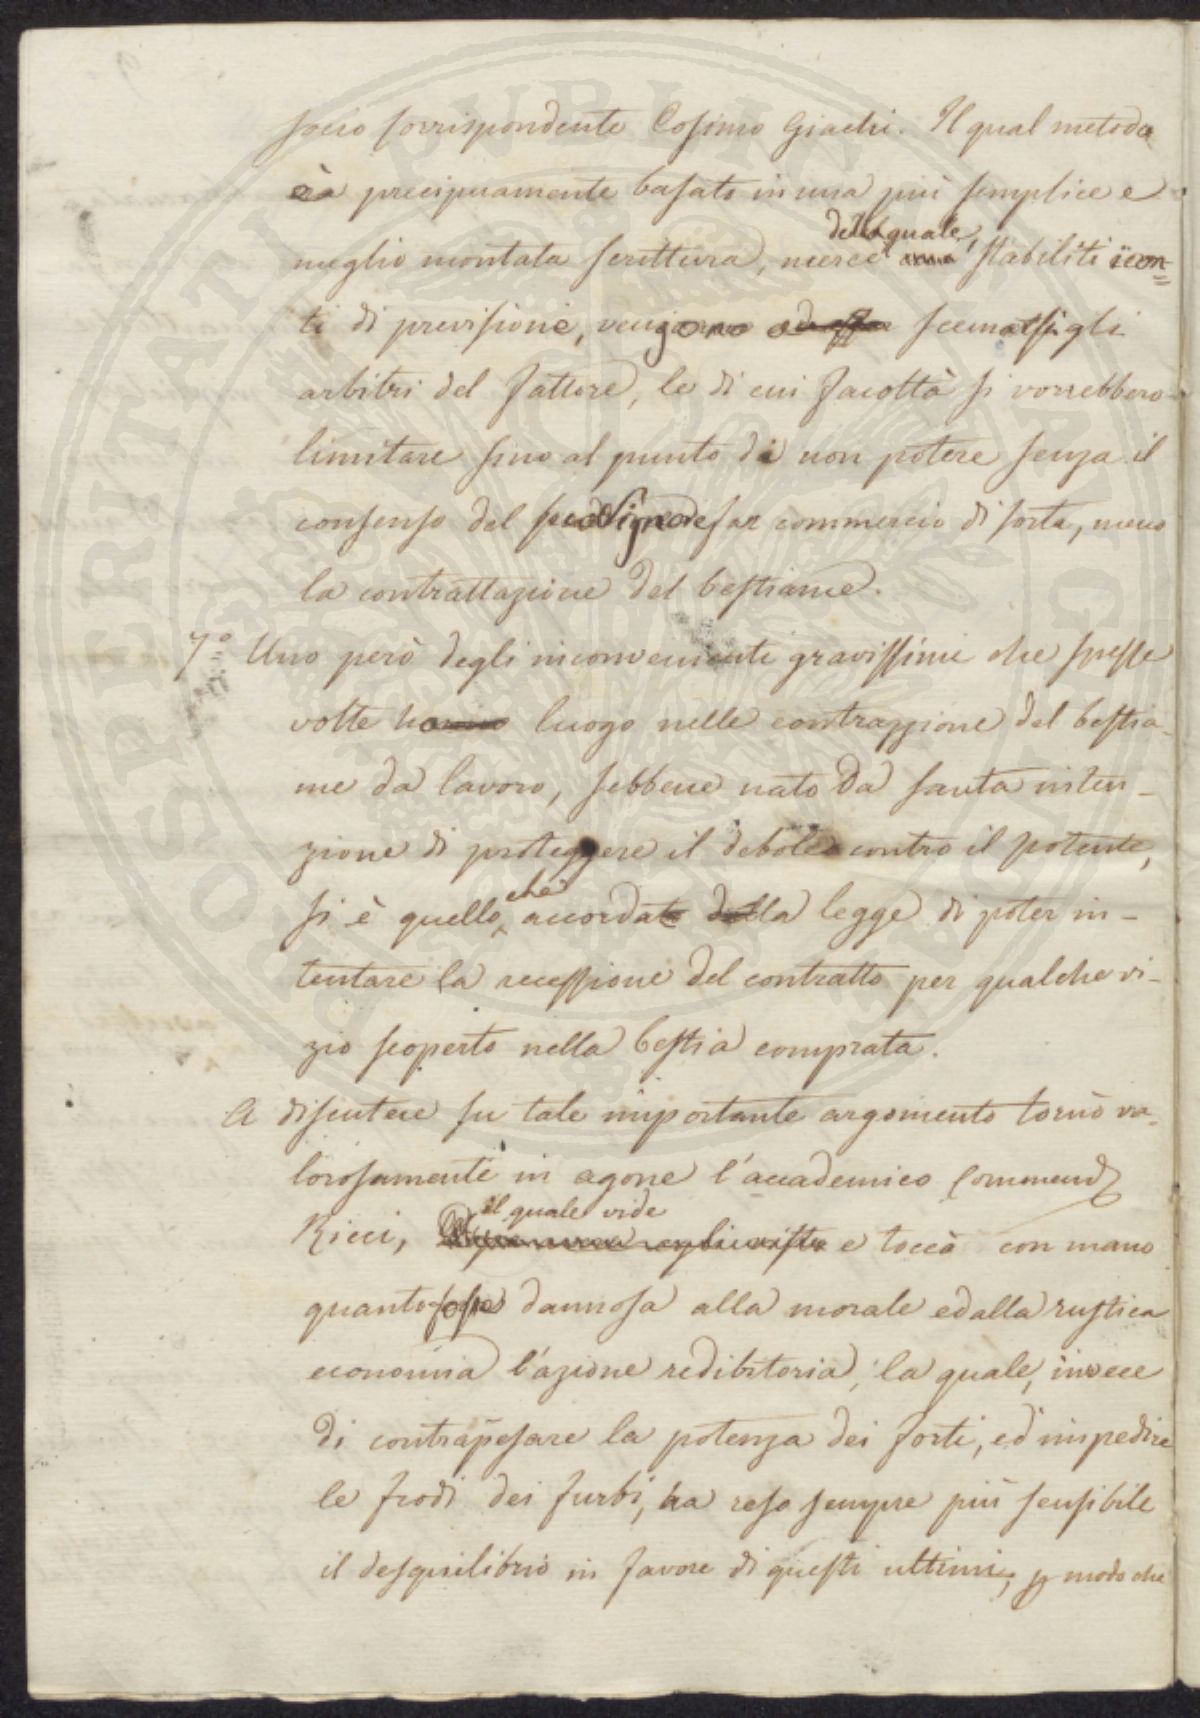 socio corrispondente Cosimo Giachi. Il qual metodo
era precipuamente basato in una più semplice e
della quale,
meglio montata scrittura, mercè stabiliti i con=
ti di previsione, vengono scemati gli
arbitri del fattore, le di cui facoltà si vorrebbero
limitare sino al punto di non potere senza il
consenso del far commercio di sorta, meno
la contrattazione del bestiame.
7° Uno però degli inconvenienti gravissimi che spesse
volte hanno luogo nelle contrazzione del bestia-
me da lavoro, sebbene nato da santa inten-
zione di proteggere il debole contro il potente,
che
si è quello accorda la legge di poter in-
tentare la recessione del contratto per qualche vi-
zio scoperto nella bestia comprata.
A discutere su tale importante argomento tornò va-
lorosamente in agone l'accademico Commend
il quale vide
Ricci, e toccò con mano
quanto fosse dannosa alla morale ed alla rustica
economia l'azione redibitoria, la quale, invece
di contrapesare la potenza dei forti, ed impedire
le frodi dei furbi, ha reso sempre più sensibile
il desquilibrio in favore di questi ultimi, p modo che
SOSPERITATI PVBLICAE AVGENDAE